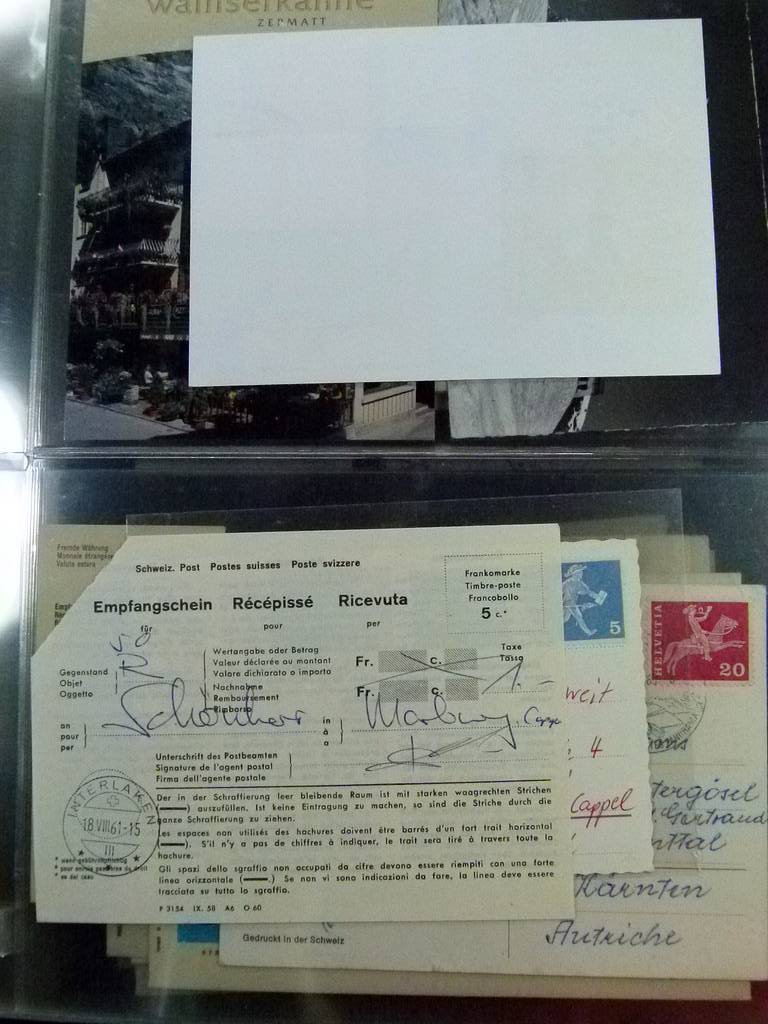 walliserkanne
ZERMATT
Fremde Währung
Monnaie étrangère
Valuta estera
Schweiz. Post Postes suisses Poste svizzera
Frankomarke
Timbre-poste
Francobollo
5 c.*
Empfangschein Récépissé Ricevuta
für pour per
5
HELVETIA
20
Gegenstand
Objet
Oggetto
R
Wertangabe oder Betrag
Valeur déclarée ou montant
Valore dichiarato o importo
Fr. c.
Taxe
Tassa
Nachnahme
Remboursement
Rimborso
Fr. c.
1.-
an
pour
per
Schönherr
in
à
a
Marburg, Cappel
weit
4
Cappel
Unterschrift des Postbeamten
Signature de l'agent postal
Firma dell'agente postale
INTERLAKEN
18.VIII.61-15
III
Der in der Schraffierung leer bleibende Raum ist mit starken waagrechten Strichen
(——) auszufüllen. Ist keine Eintragung zu machen, so sind die Striche durch die
ganze Schraffierung zu ziehen.
Les espaces non utilisés des hachures doivent être barrés d'un fort trait horizontal
(——). S'il n'y a pas de chiffres à indiquer, le trait sera tiré à travers toute la
hachure.
Gli spazi dello sgraffio non occupati da cifre devono essere riempiti con una forte
linea orizzontale (——). Se non vi sono indicazioni da fare, la linea deve essere
tracciata su tutto lo sgraffio.
* wenn gebührenpflichtig
* pour envois passibles du droit
* se del caso
P 3154 IX. 58 A6 O 60
Gertraud
Kärnten
Autriche
Gedruckt in der Schweiz